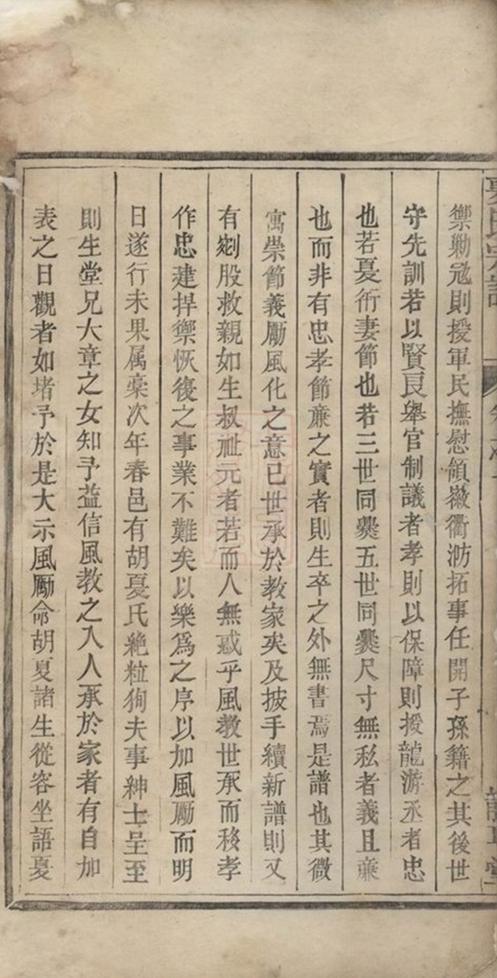 禦勦冦則授軍民撫慰領徽衢汸拓事任開子孫籍之其後世
守先訓若以賢良舉官制議者孝則以保障則授龍游丞者忠
也若夏術妻節也若三世同爨五世同爨尺寸無私者義且亷
也而非有忠孝節亷之實者則生卒之外無書焉是譜也其微
寓崇節義勵風化之意已世承於教家矣及披手續新譜則又
有剜股救親如生叔祉元者若而人無惑乎風教世承而移孝
作忠建捍禦恢復之事業不難矣以樂爲之序以加風勵而明
日遂行未果属稾次年春邑有胡夏氏絶粒狥夫事紳士呈至
則生堂兄大章之女知予益信風教之入人承於家者有自加
表之日觀者如堵予於是大示風勵命胡夏諸生從容坐語夏